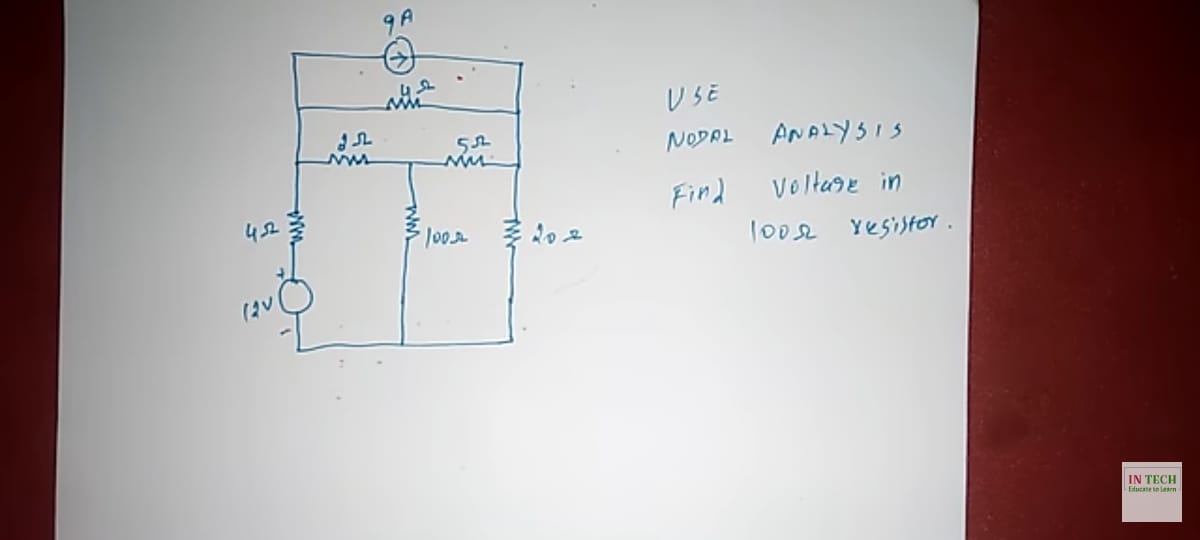 9A
4Ω
2Ω
5Ω
4Ω
100Ω
20Ω
+
12V
-
USE
NODAL ANALYSIS
Find voltage in
100Ω resistor.
IN TECH
Educate to Learn